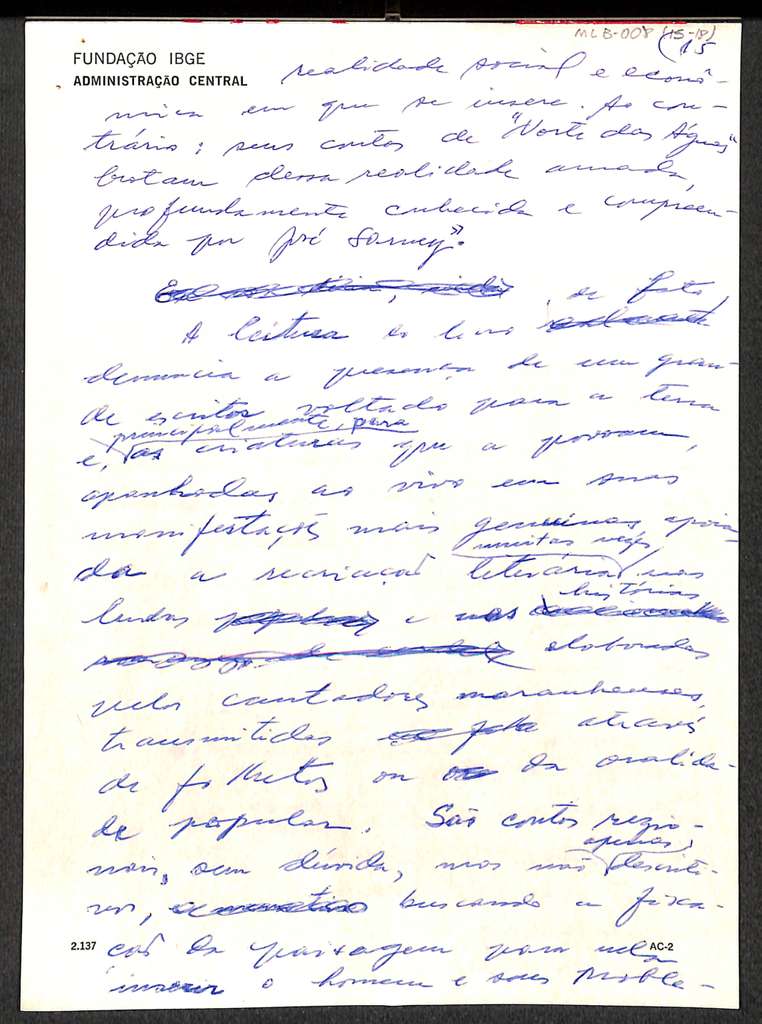 MLB-008 (15-18)
(15
FUNDAÇÃO IBGE
ADMINISTRAÇÃO CENTRAL
realidade social e econô-
mica em que se insere. Ao con-
trário: seus contos de "Norte das Águas"
brotam dessa realidade amada,
profundamente conhecida e compreen-
dida por José Sarney".
, de fato,
A leitura do livro
denuncia a presença de um gran-
de escritor voltado para a terra
principalmente, para
e, as criaturas que a povoam,
apanhadas ao vivo em suas
manifestações mais genuínas, apoia-
muitas vezes,
da a recriação literária, nas
histórias
lendas e nas
elaboradas
pelos cantadores maranhenses,
transmitidas através
de folhetos ou da oralida-
de popular. São contos regio-
apenas,
nais, sem dúvida, mas não descriti-
vos, buscando a fixa-
2.137
ção da paisagem para nela
AC-2
inserir o homem e seus proble-